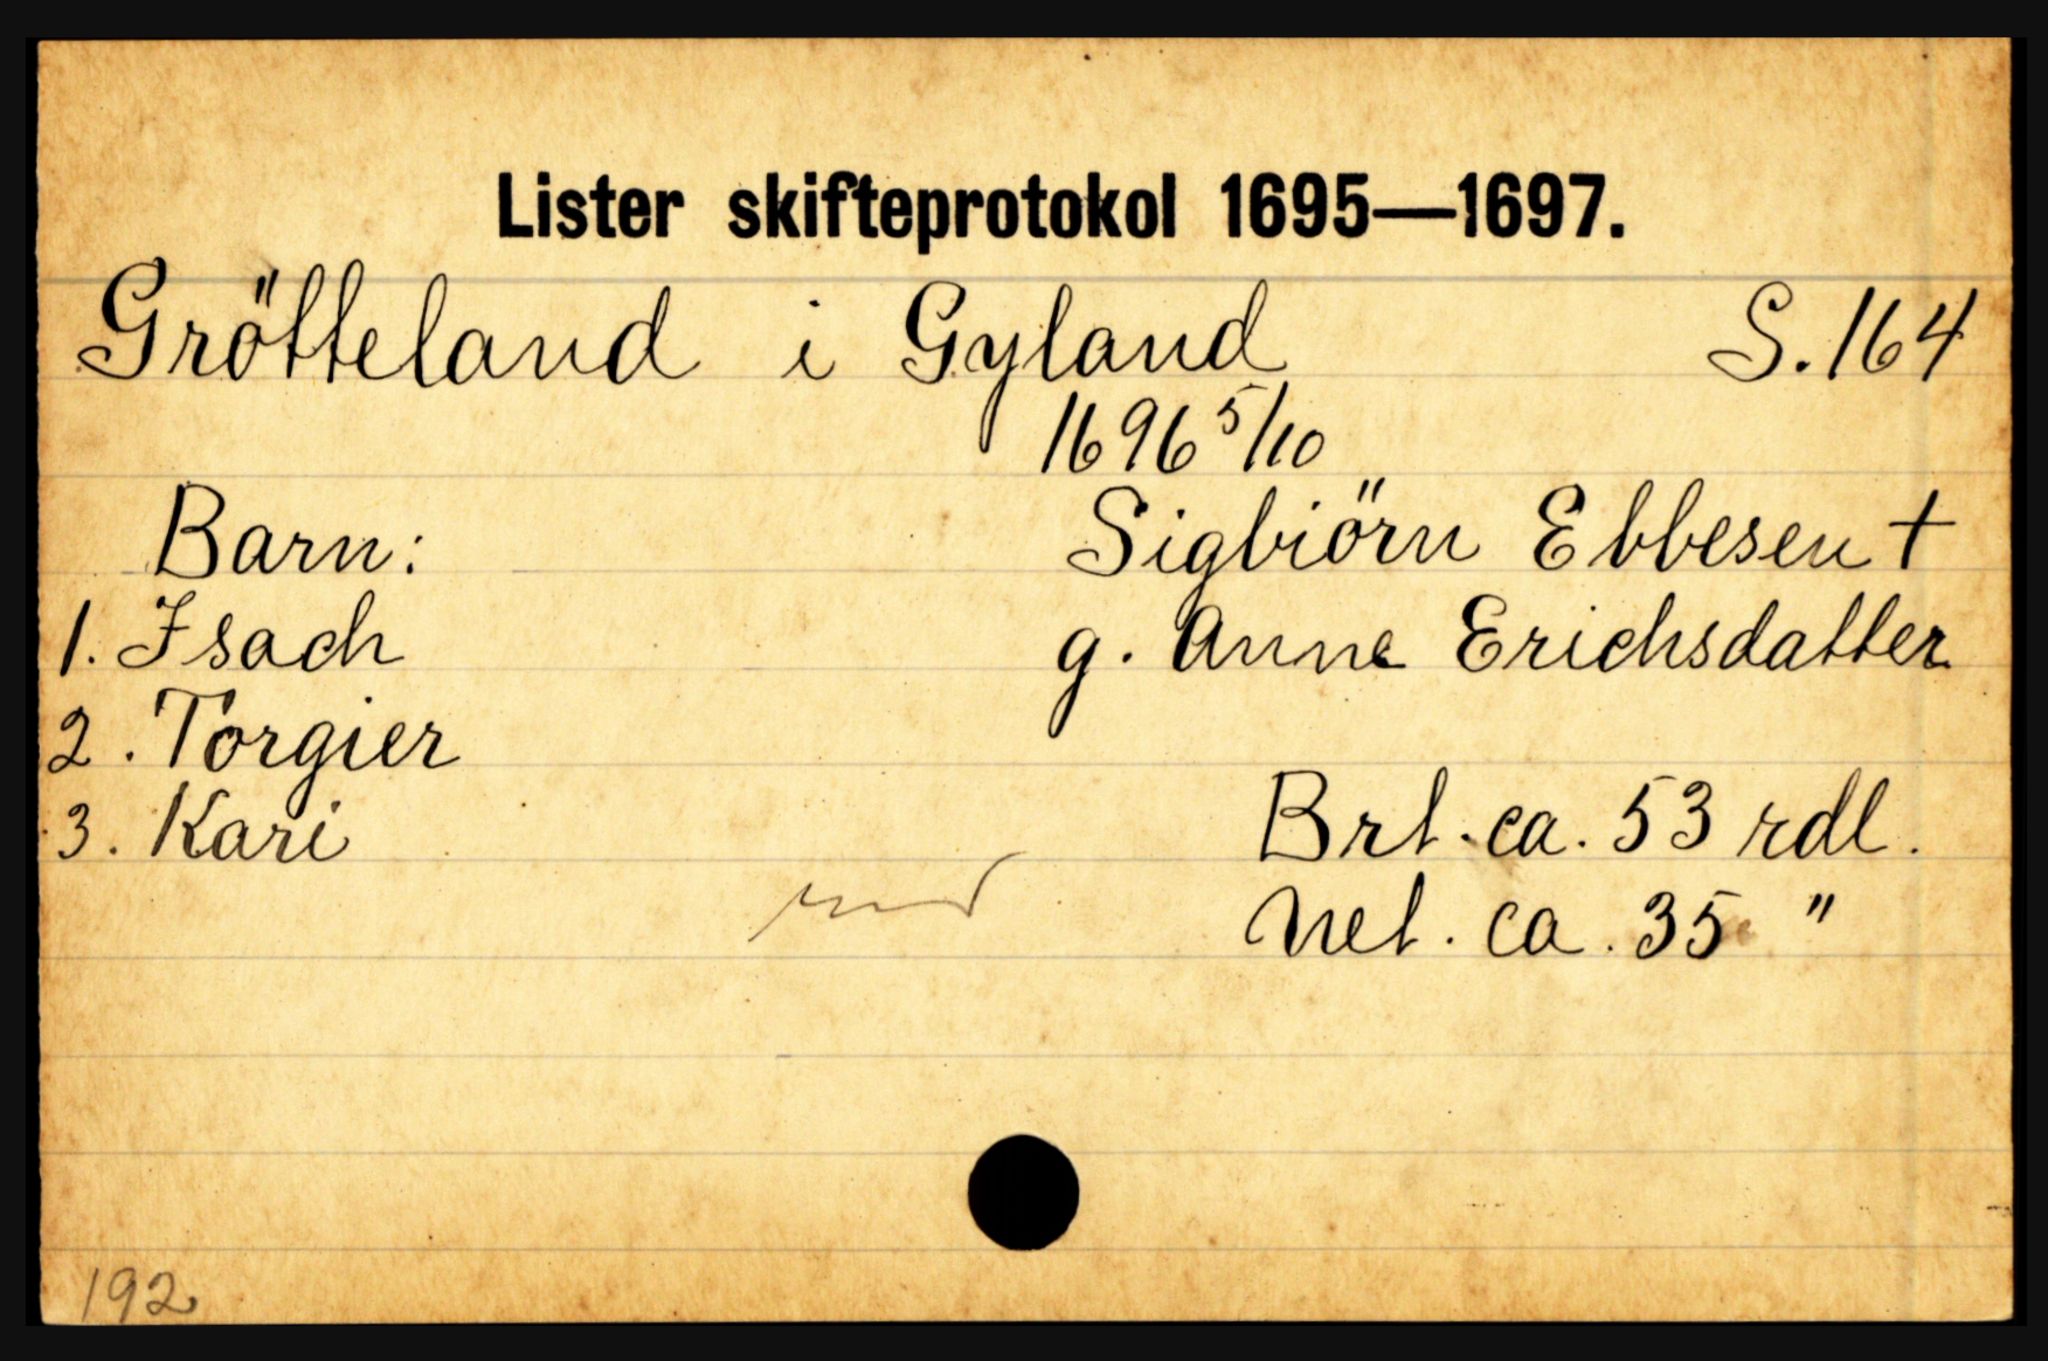 Lister skifteprotokol 1695—1697.
Grötteland i Gyland S. 164
1696 5/10
Barn: Sigbiörn Ebbesen †
1. Isach g. Anne Erichsdatter
2. Torgier
3. Kari Brt. ca. 53 rdl.
Net. ca. 35 "
192